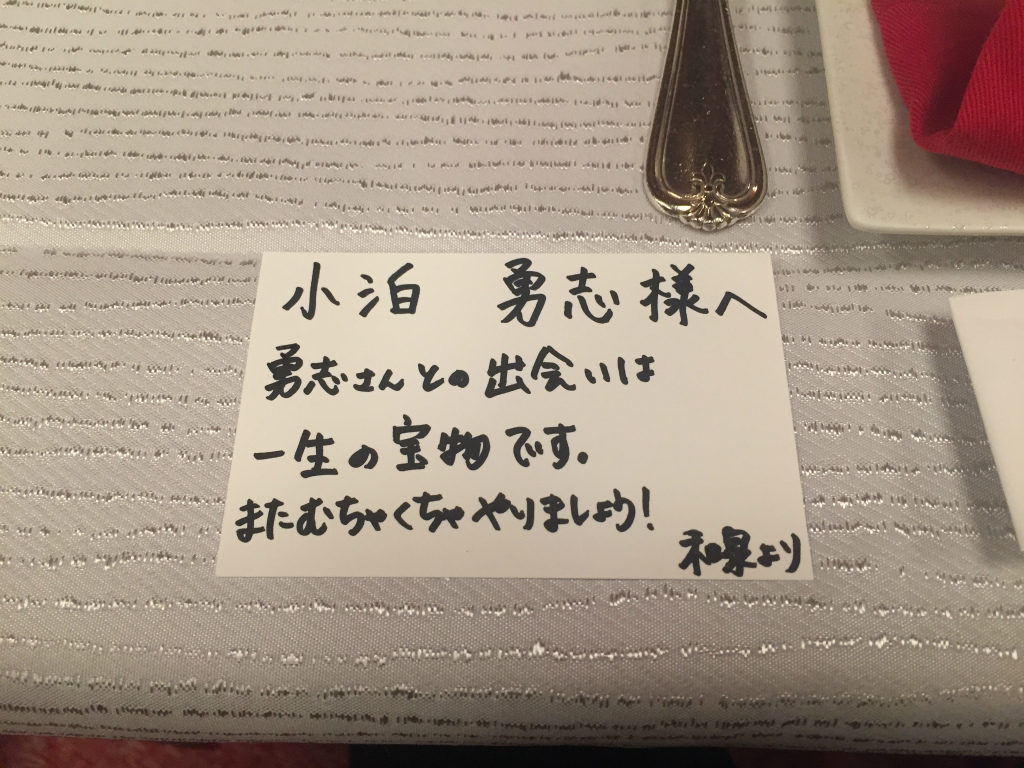 小泊　勇志様へ
勇志さんとの出会いは
一生の宝物です。
またむちゃくちゃやりましょう!
和泉より